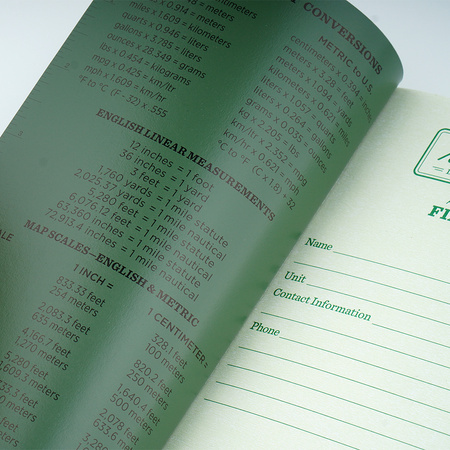 CONVERSIONS
meters
miles x 1.609 = kilometers
quarts x 0.946 = liters
gallons x 3.785 = liters
ounces x 28.349 = grams
lbs x 0.454 = kilograms
mpg x 0.425 = km/ltr
mph x 1.609 = km/hr
°F to °C (F - 32) x .555
METRIC to U.S.
centimeters x 0.394
meters x 3.28
kilometers x 0.621
liters x 1.057
liters x 0.264
grams x 0.035 = ounces
kg x 2.205 = lbs
km/ltr x 2.352 = mpg
km/hr x 0.621 = mph
°C to °F (C x 1.8) + 32
ENGLISH LINEAR MEASUREMENTS
12 inches = 1 foot
36 inches = 1 yard
3 feet = 1 yard
1,760 yards = 1 mile statute
2,025.37 yards = 1 mile nautical
5,280 feet = 1 mile statute
6,076.12 feet = 1 mile nautical
63,360 inches = 1 mile statute
72,913.4 inches = 1 mile nautical
MAP SCALES—ENGLISH & METRIC
1 INCH =
833.33 feet
254 meters
2,083.3 feet
635 meters
4,166.7 feet
1,270 meters
5,280 feet
1,609.3 meters
1 CENTIMETER =
328.1 feet
100 meters
820.2 feet
250 meters
1,640.4 feet
500 meters
2,078 feet
633.6
Name
Unit
Contact Information
Phone